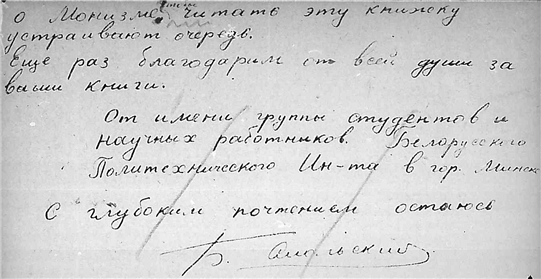 о Монизме, читать эту книжку
устраивают очередь.
Еще раз благодарим от всей души за
ваши книги.
От имени группы студентов и
научных работников. Белорусского
Политехнического Ин-та в гор. Минск
С глубоким почтением остаюсь
Б. Смольский